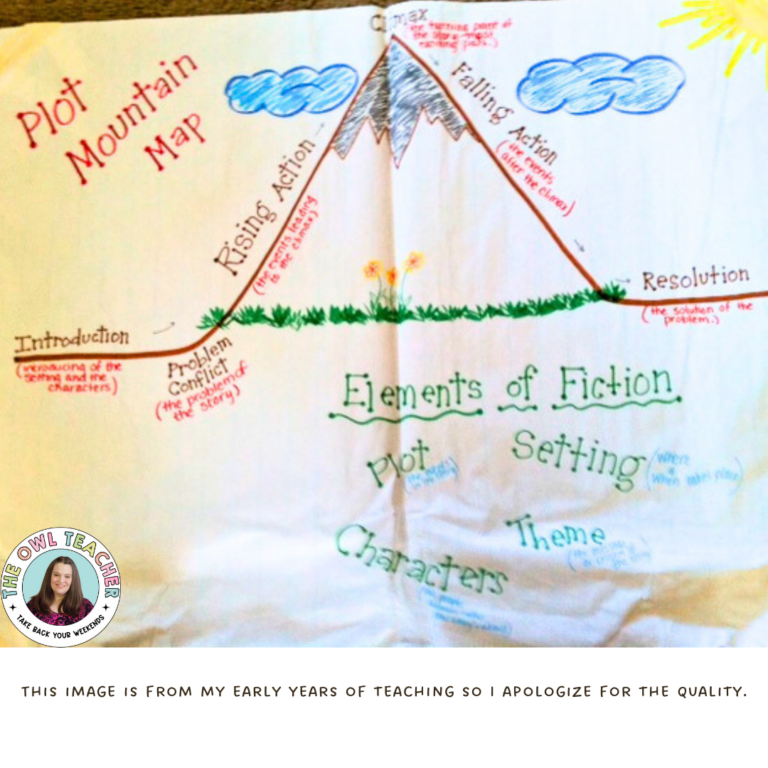 Plot
Mountain
Map
Climax
(the turning point of
the story-most
exciting part.)
Falling Action
(the events
after the climax)
Rising Action
(the events leading
to the climax)
Resolution
(the solution of the
problem.)
Introduction
(introducing of the
setting and the
characters)
Problem
Conflict
(the problem of
the story)
Elements of Fiction
Plot
Setting
(where
&
when takes place)
Theme
Characters
THE OWL TEACHER
TAKE BACK YOUR WEEKENDS
THIS IMAGE IS FROM MY EARLY YEARS OF TEACHING SO I APOLOGIZE FOR THE QUALITY.